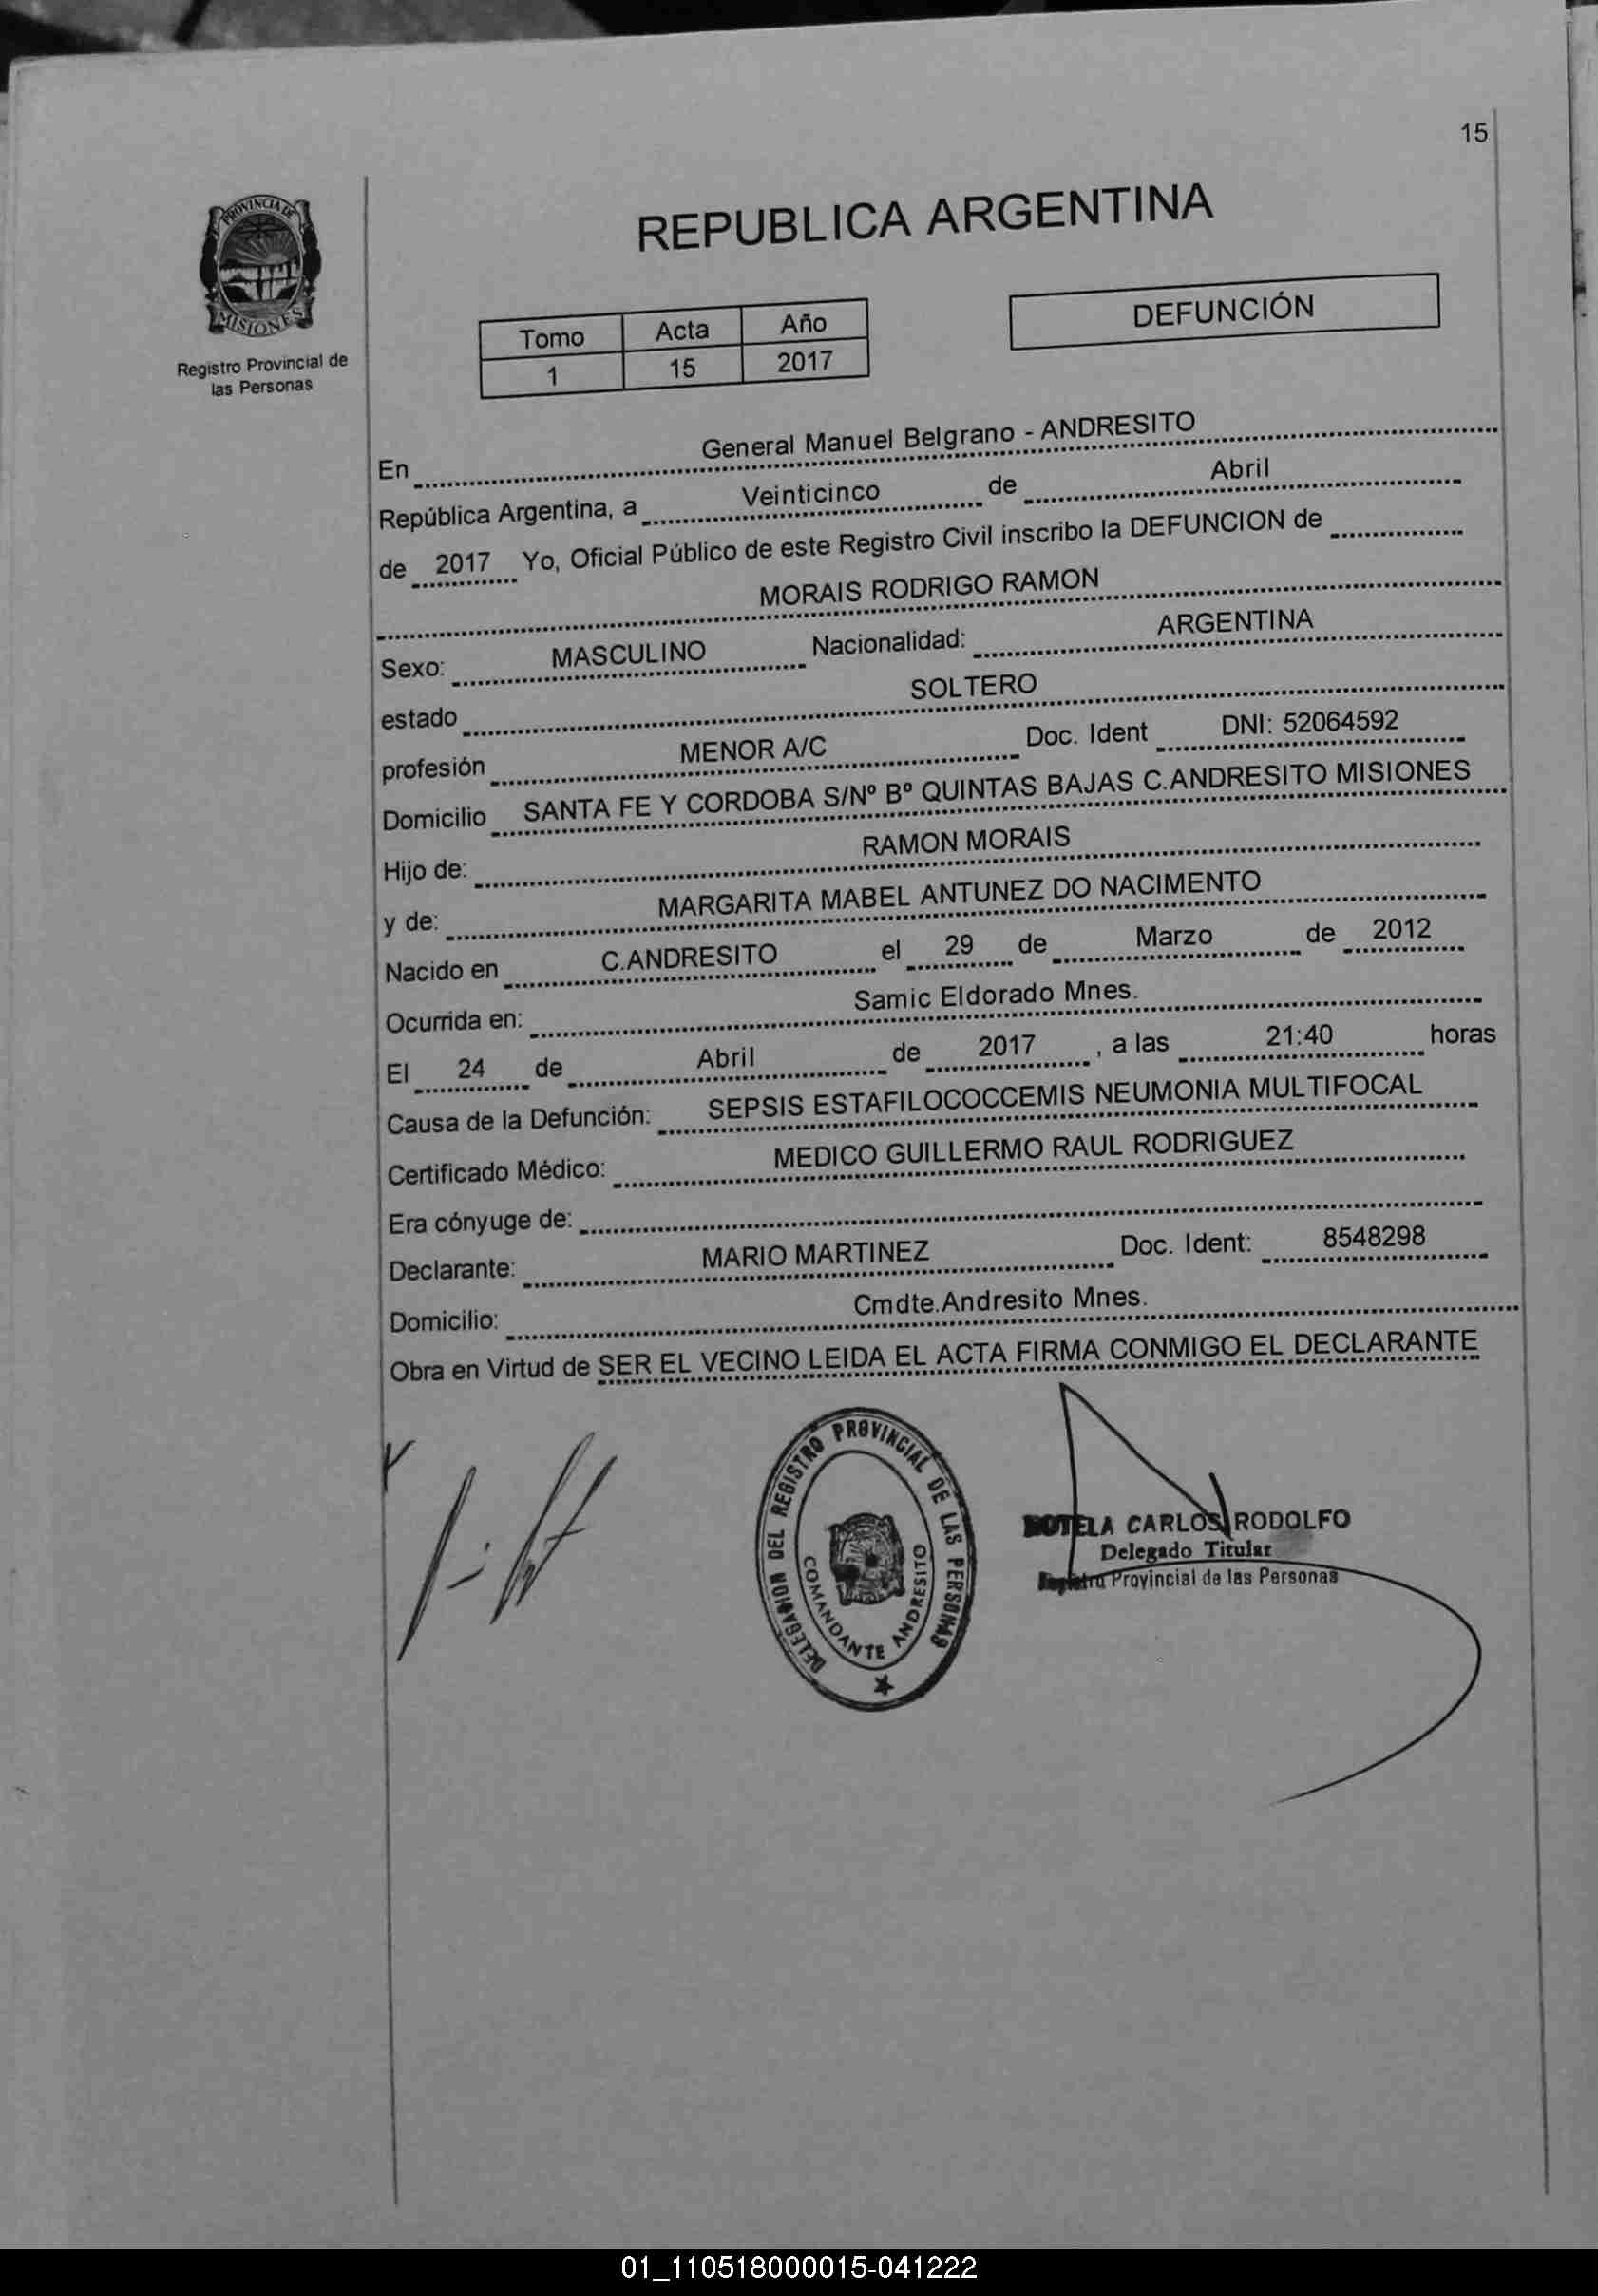 15
PROVINCIA DE
MISIONES
Registro Provincial de
las Personas
REPUBLICA ARGENTINA
Tomo Acta Año
1 15 2017
DEFUNCIÓN
En General Manuel Belgrano - ANDRESITO
República Argentina, a Veinticinco de Abril
de 2017 Yo, Oficial Público de este Registro Civil inscribo la DEFUNCION de
MORAIS RODRIGO RAMON
Sexo: MASCULINO Nacionalidad: ARGENTINA
estado SOLTERO
profesión MENOR A/C Doc. Ident DNI: 52064592
Domicilio SANTA FE Y CORDOBA S/Nº Bº QUINTAS BAJAS C.ANDRESITO MISIONES
Hijo de: RAMON MORAIS
y de: MARGARITA MABEL ANTUNEZ DO NACIMENTO
Nacido en C.ANDRESITO el 29 de Marzo de 2012
Ocurrida en: Samic Eldorado Mnes.
El 24 de Abril de 2017, a las 21:40 horas
Causa de la Defunción: SEPSIS ESTAFILOCOCCEMIS NEUMONIA MULTIFOCAL
Certificado Médico: MEDICO GUILLERMO RAUL RODRIGUEZ
Era cónyuge de:
Declarante: MARIO MARTINEZ Doc. Ident: 8548298
Domicilio: Cmdte.Andresito Mnes.
Obra en Virtud de SER EL VECINO LEIDA EL ACTA FIRMA CONMIGO EL DECLARANTE
DELEGACION DEL REGISTRO PROVINCIAL DE LAS PERSONAS
COMANDANTE ANDRESITO
CARLOS RODOLFO
Delegado Titular
Registro Provincial de las Personas
01_110518000015-041222